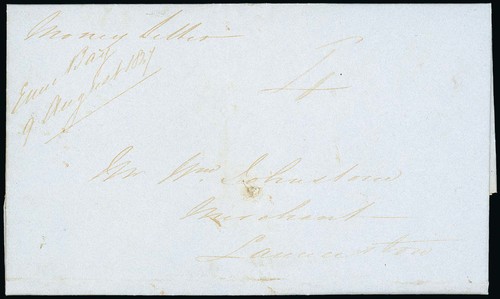 Money Letter
Emu Bay
9 August 1847
Mr Wm Johnstone
Merchant
Launceston